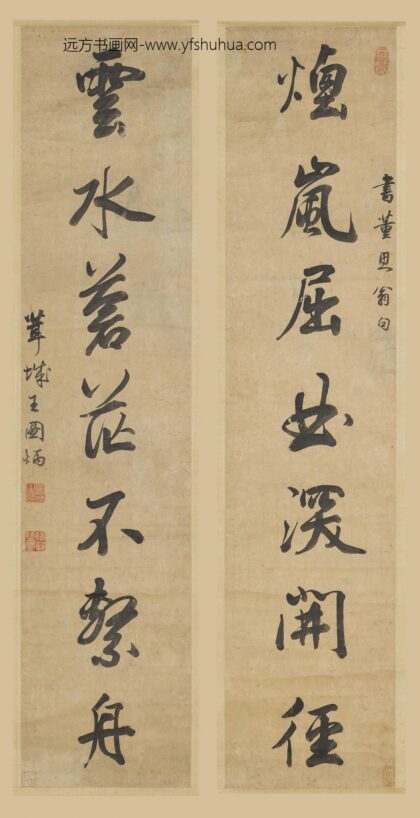 远方书画网-www.yfshuhua.com
書董思翁句
煙嵐屈曲深開徑
雲水蒼茫不繫舟
茸城王圖炳